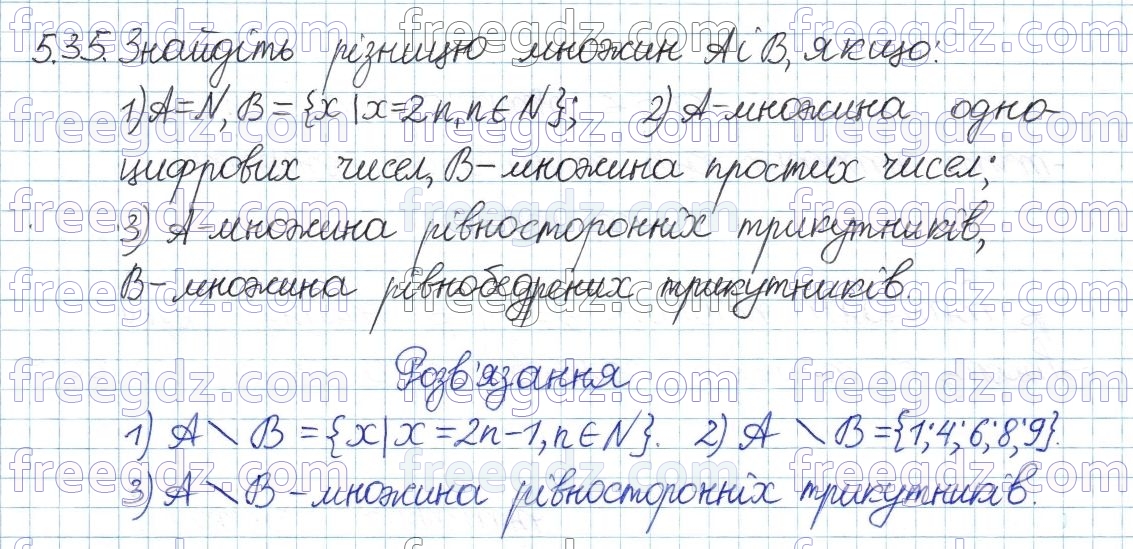 5.35. Знайдіть різницю множин А і В, якщо:
1) A=N, B={x|x=2n, n∈N}; 2) А-множина одно-
цифрових чисел, В-множина простих чисел;
3) А-множина рівносторонніх трикутників,
В-множина рівнобедрених трикутників.
Розв'язання
1) A\B={x|x=2n-1, n∈N}. 2) A\B={1;4;6;8;9}.
3) A\B-множина рівносторонніх трикутників.
freegdz.com